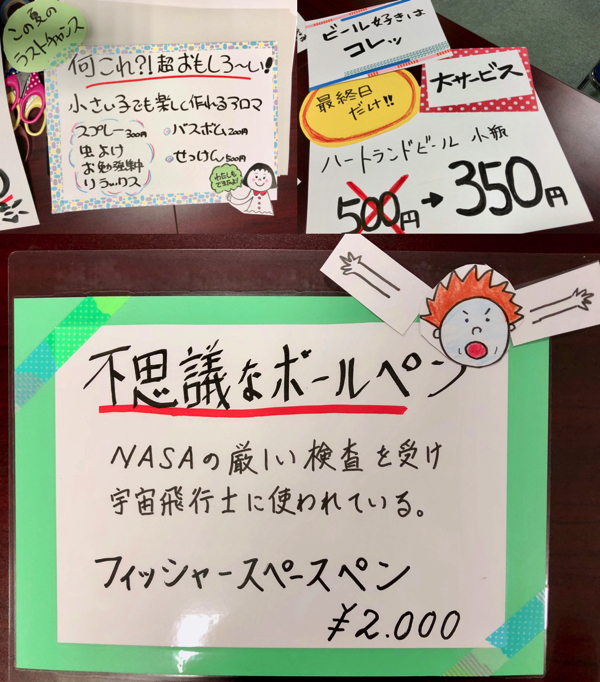 この夏の
ラストチャンス
何これ?!超おもしろ〜い!
小さい子でも楽しく作れるアロマ
スプレー300円
バスボム200円
虫よけ
お勉強中
せっけん500円
リラックス
わたしも
できたよ!
ビール好きは
コレッ
最終日
だけ!!
大サービス
ハートランドビール 小瓶
500円→350円
不思議なボールペン
NASAの厳しい検査を受け
宇宙飛行士に使われている。
フィッシャースペースペン
¥2.000